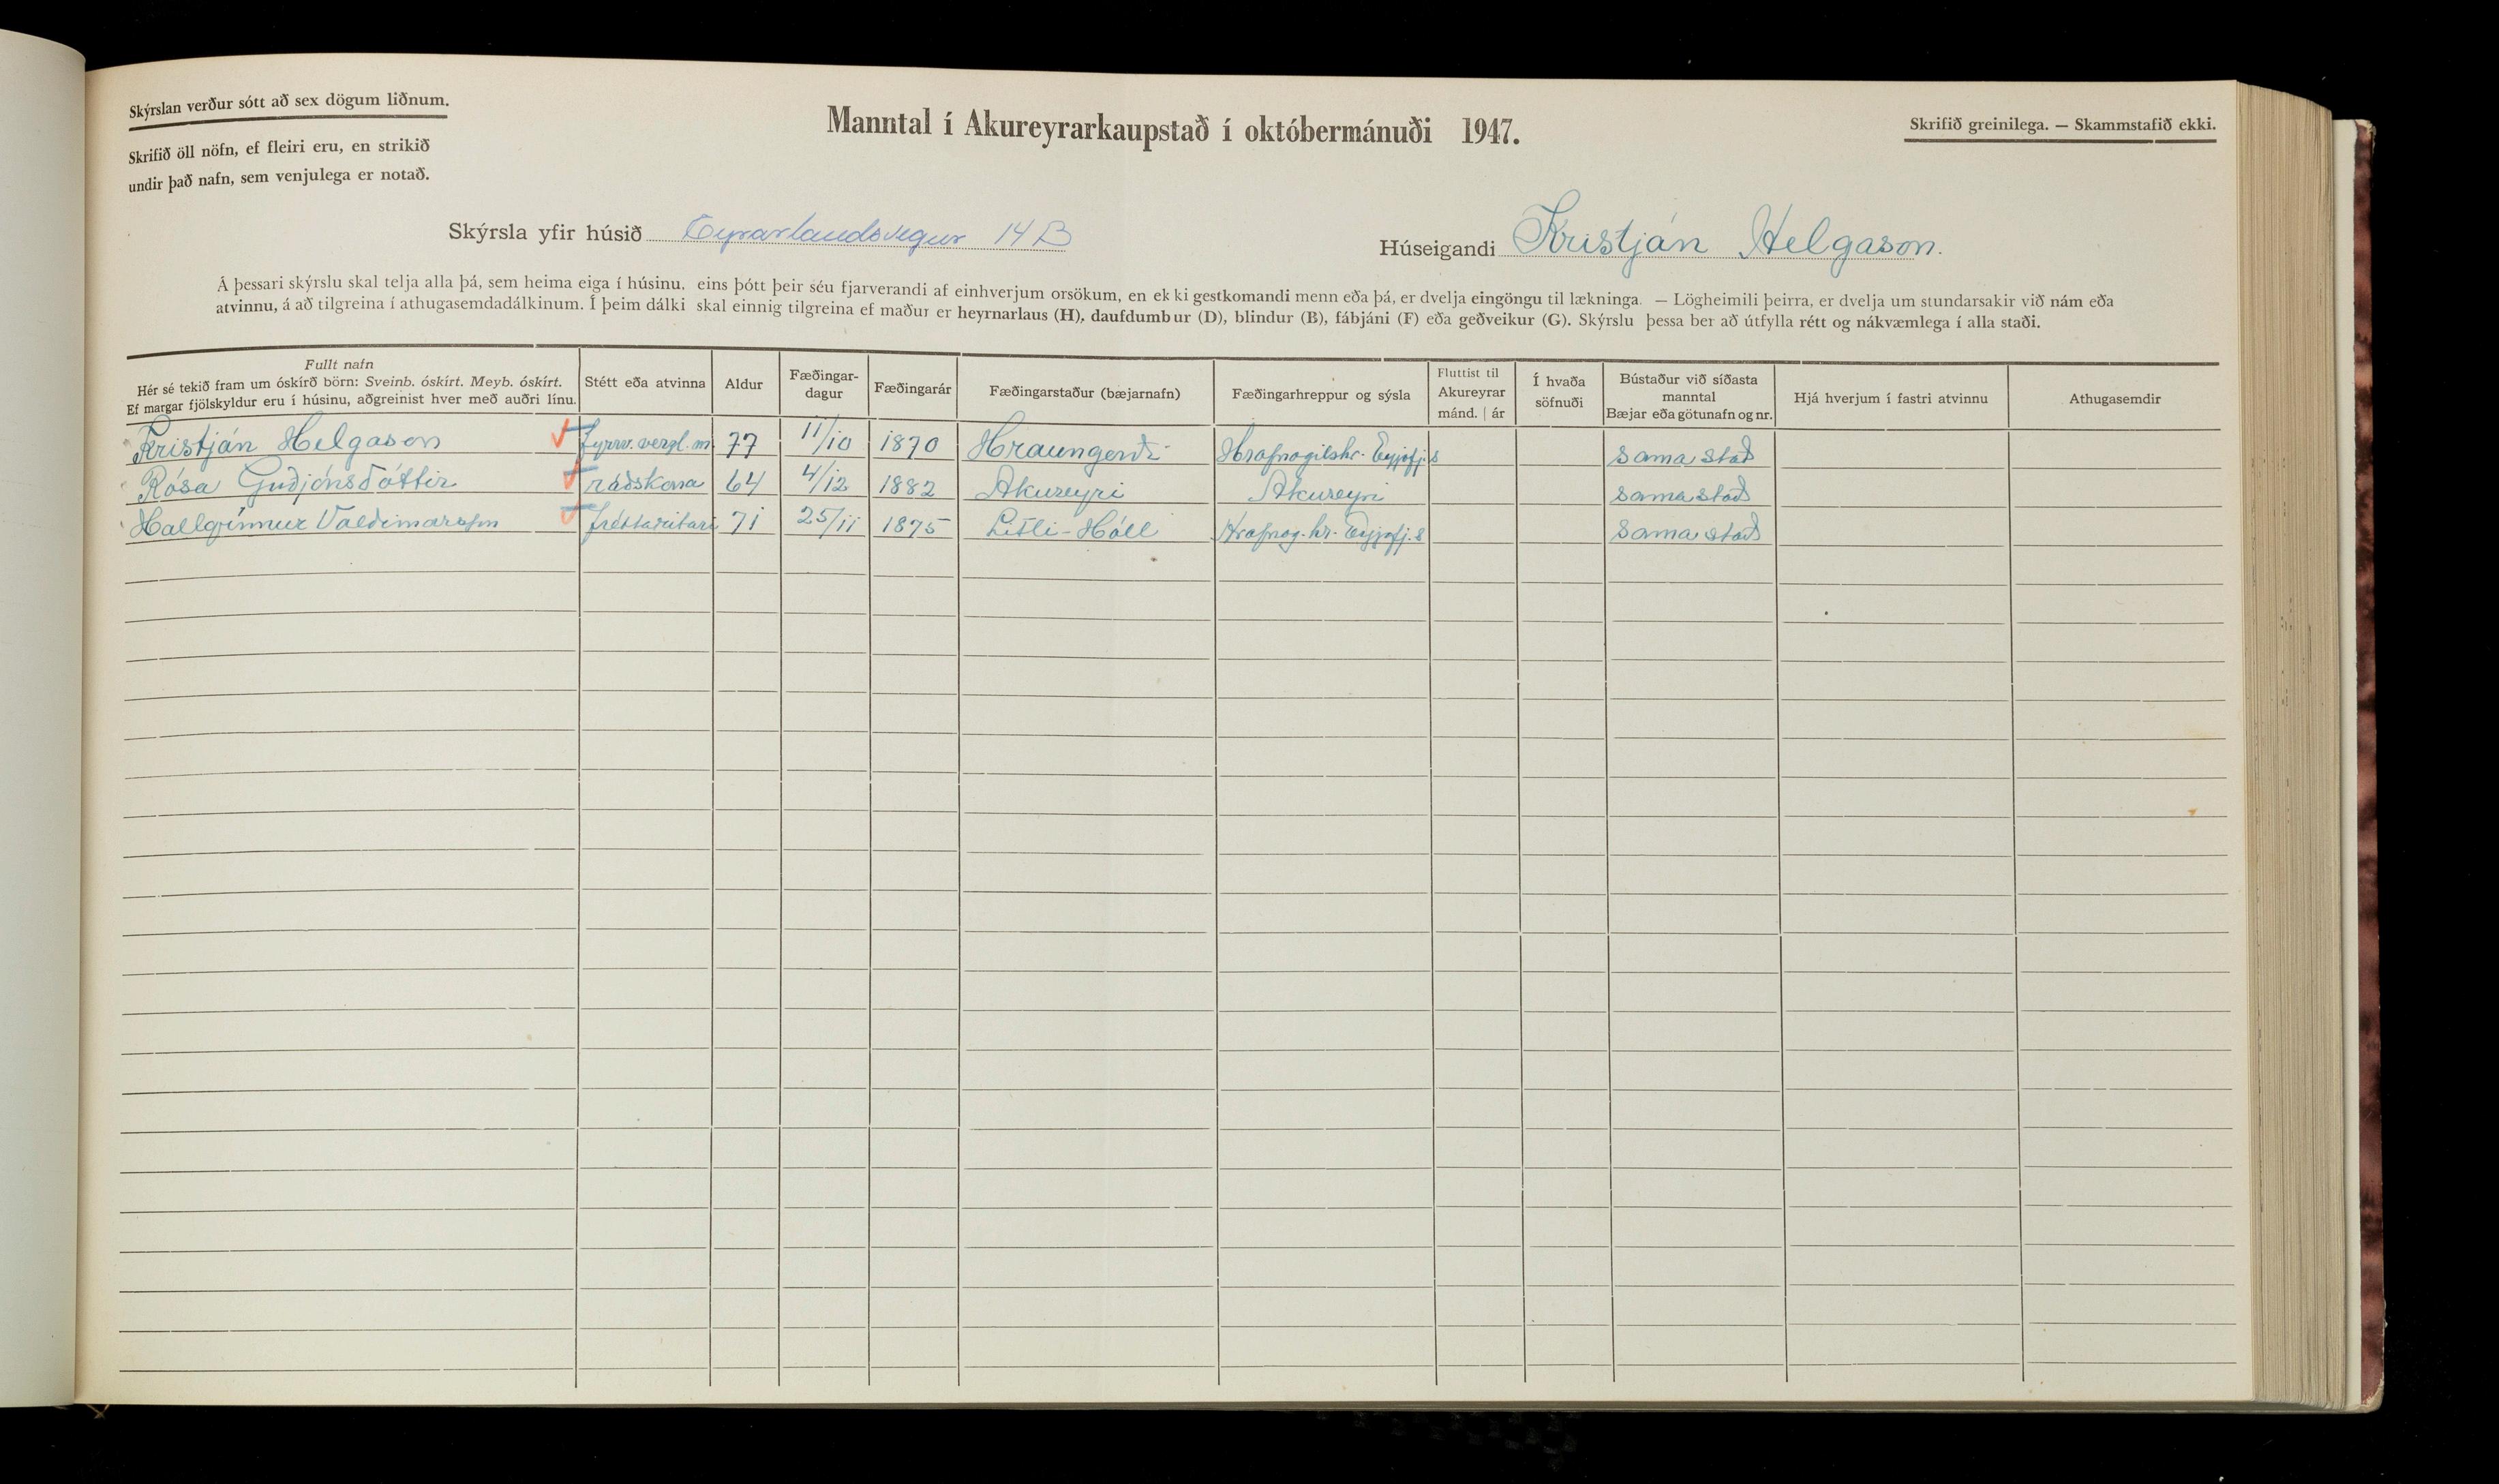 Skýrslan verður sótt að sex dögum liðnum.
Skrifið öll nöfn, ef fleiri eru, en strikið
undir það nafn, sem venjulega er notað.
Manntal í Akureyrarkaupstað í októbermánuði 1947.
Skrifið greinilega. — Skammstafið ekki.
Skýrsla yfir húsið Eyrarlandsvegur 14 B
Húseigandi Kristján Helgason.
Á þessari skýrslu skal telja alla þá, sem heima eiga í húsinu, eins þótt þeir séu fjarverandi af einhverjum orsökum, en ekki gestkomandi menn eða þá, er dvelja eingöngu til lækninga. — Lögheimili þeirra, er dvelja um stundarsakir við nám eða
atvinnu, á að tilgreina í athugasemdadálkinum. Í þeim dálki skal einnig tilgreina ef maður er heyrnarlaus (H), daufdumbur (D), blindur (B), fábjáni (F) eða geðveikur (G). Skýrslu þessa ber að útfylla rétt og nákvæmlega í alla staði.
Fullt nafn
Hér sé tekið fram um óskírð börn: Sveinb. óskírt. Meyb. óskírt.
Ef margar fjölskyldur eru í húsinu, aðgreinist hver með auðri línu.
Stétt eða atvinna
Aldur
Fæðingar-
dagur
Fæðingarár
Fæðingarstaður (bæjarnafn)
Fæðingarhreppur og sýsla
Fluttist til
Akureyrar
mánd. | ár
Í hvaða
söfnuði
Bústaður við síðasta
manntal
Bæjar eða götunafn og nr.
Hjá hverjum í fastri atvinnu
Athugasemdir
Kristján Helgason fyrrv. verzl.m. 77 11/10 1870 Hraungerði Hrafnagilshr. Eyjafj.s sama stað
Rósa Guðjónsdóttir ráðskona 64 4/12 1882 Akureyri Akureyri sama stað
Hallgrímur Valdimarsson fréttaritari 71 25/11 1875 Litli-Hóll Hrafnag.hr. Eyjafj.s sama stað